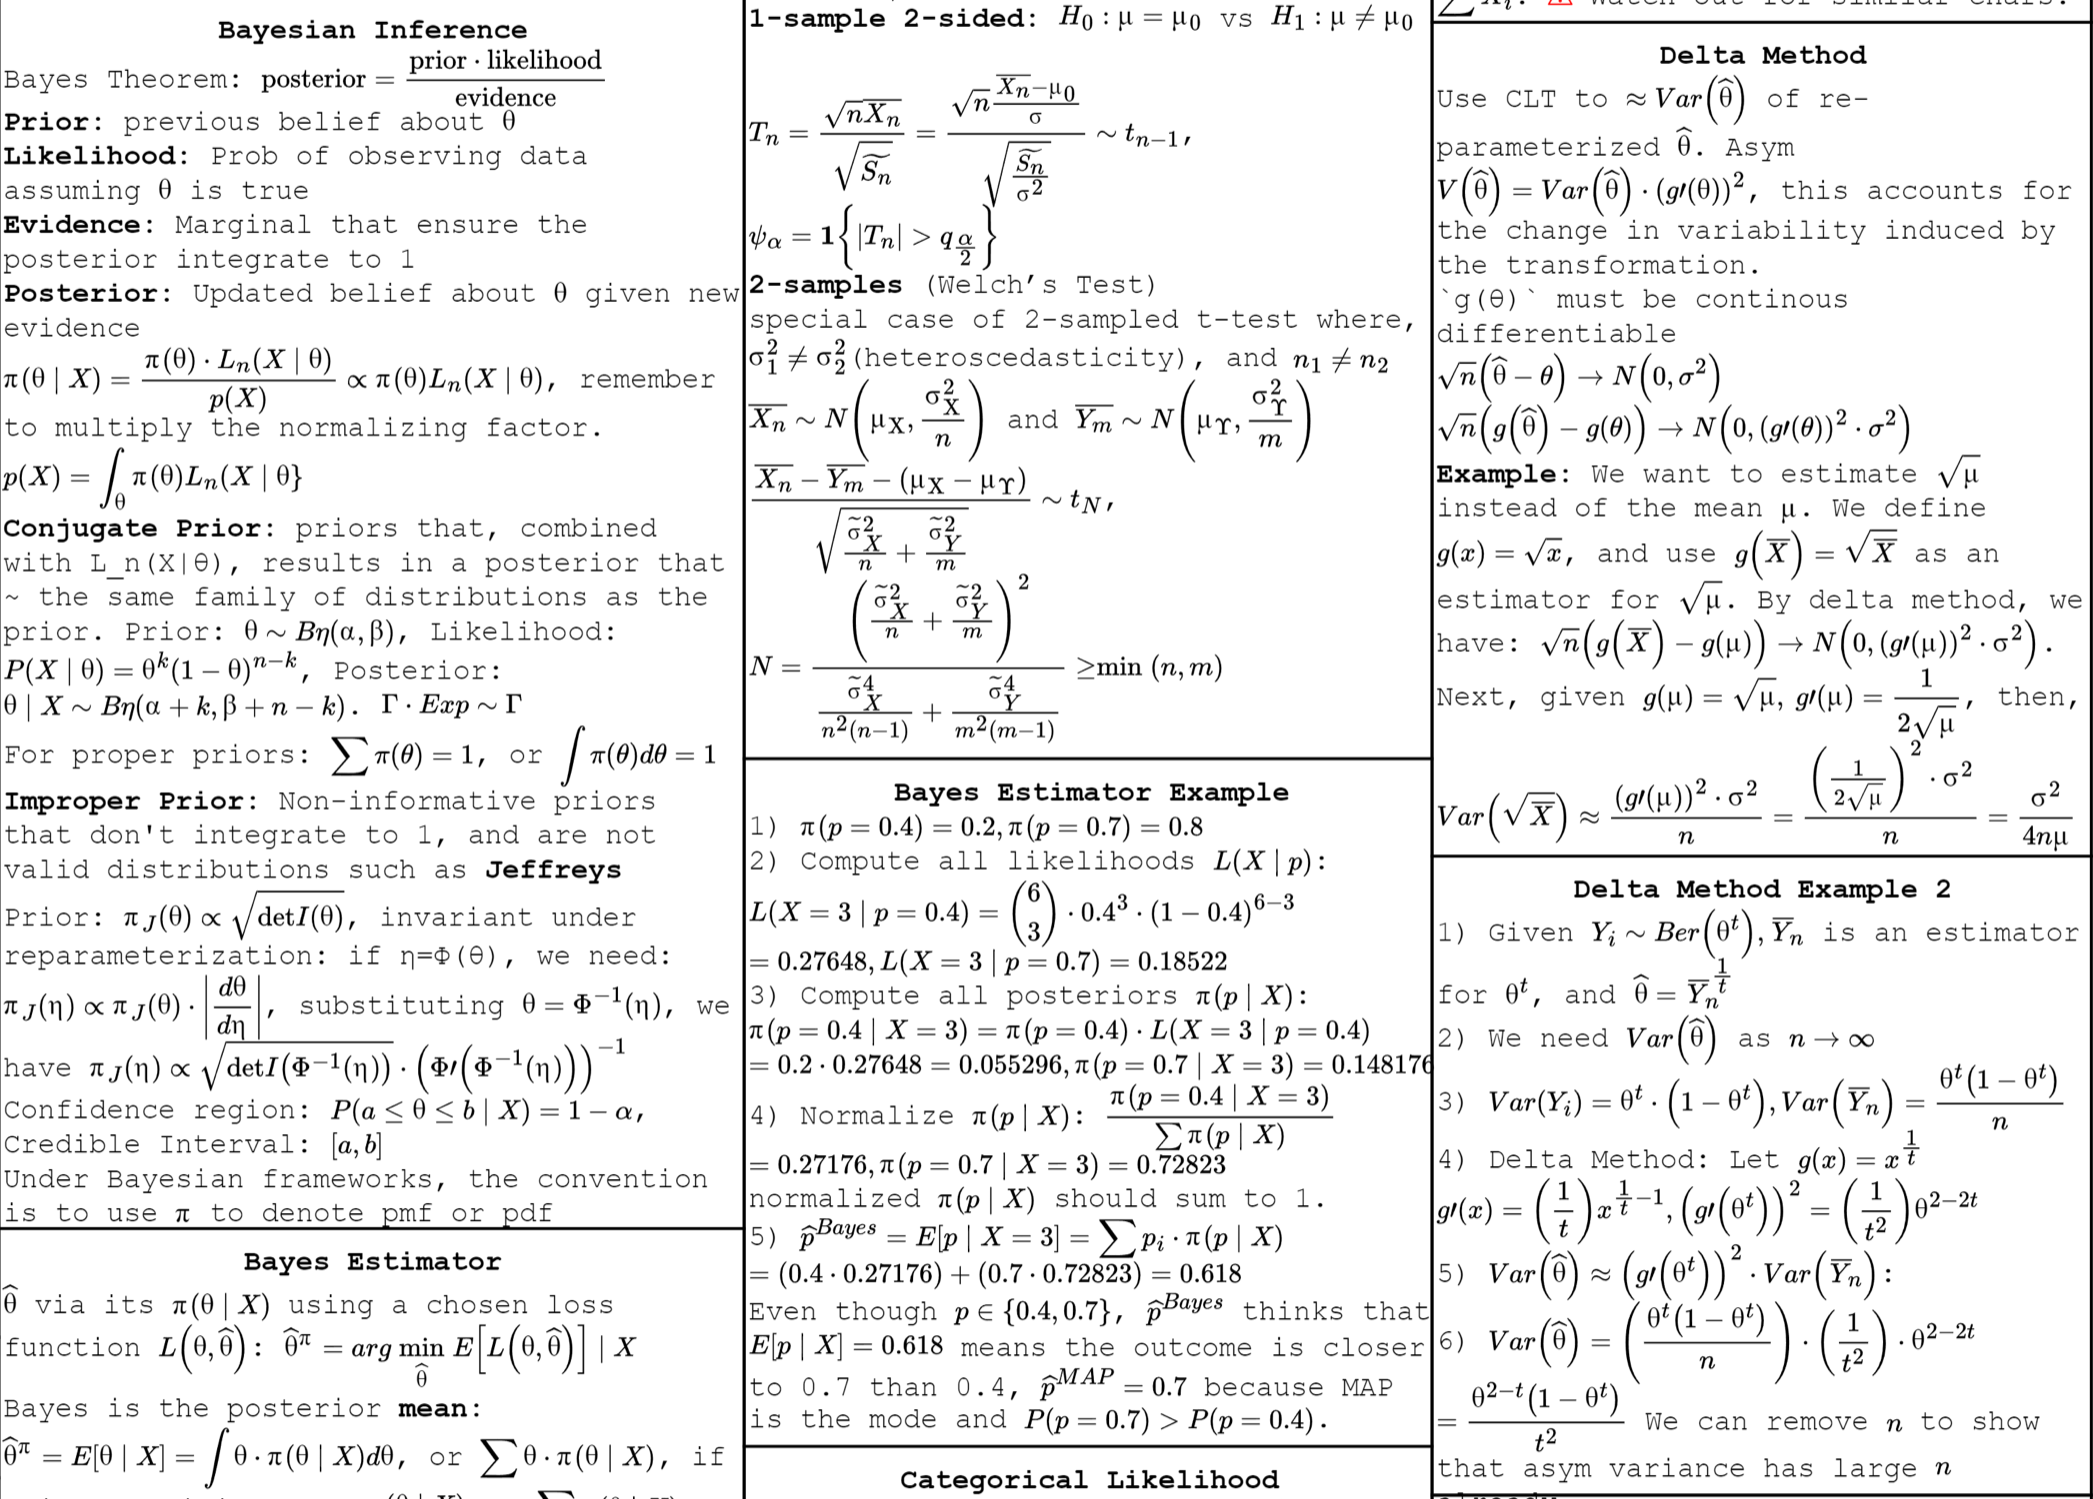 Bayesian Inference
Bayes Theorem: posterior = prior · likelihood / evidence
Prior: previous belief about θ
Likelihood: Prob of observing data
assuming θ is true
Evidence: Marginal that ensure the
posterior integrate to 1
Posterior: Updated belief about θ given new
evidence
π(θ | X) = π(θ) · Lₙ(X | θ) / p(X) ∝ π(θ)Lₙ(X | θ), remember
to multiply the normalizing factor.
p(X) = ∫_θ π(θ)Lₙ(X | θ}
Conjugate Prior: priors that, combined
with L_n(X|θ), results in a posterior that
~ the same family of distributions as the
prior. Prior: θ ~ Bη(α,β), Likelihood:
P(X | θ) = θ^k(1 − θ)^{n−k}, Posterior:
θ | X ~ Bη(α + k, β + n − k). Γ · Exp ~ Γ
For proper priors: ∑π(θ) = 1, or ∫π(θ)dθ = 1
Improper Prior: Non-informative priors
that don't integrate to 1, and are not
valid distributions such as Jeffreys
Prior: π_J(θ) ∝ √detI(θ), invariant under
reparameterization: if η=Φ(θ), we need:
π_J(η) ∝ π_J(θ) · |dθ/dη|, substituting θ = Φ⁻¹(η), we
have π_J(η) ∝ √detI(Φ⁻¹(η)) · (Φ′(Φ⁻¹(η)))⁻¹
Confidence region: P(a ≤ θ ≤ b | X) = 1 − α,
Credible Interval: [a,b]
Under Bayesian frameworks, the convention
is to use π to denote pmf or pdf
Bayes Estimator
θ̂ via its π(θ | X) using a chosen loss
function L(θ,θ̂): θ̂^π = arg min_θ̂ E[L(θ,θ̂)] | X
Bayes is the posterior mean:
θ̂^π = E[θ | X] = ∫θ · π(θ | X)dθ, or ∑θ · π(θ | X), if
1-sample 2-sided: H₀ : μ = μ₀ vs H₁ : μ ≠ μ₀
Tₙ = √n X̅ₙ / √S̃ₙ = (√n (X̅ₙ−μ₀)/σ) / √(S̃ₙ/σ²) ~ t_{n−1},
ψ_α = 1{|Tₙ| > q_{α/2}}
2-samples (Welch's Test)
special case of 2-sampled t-test where,
σ₁² ≠ σ₂² (heteroscedasticity), and n₁ ≠ n₂
X̅ₙ ~ N(μ_X, σ_X²/n) and Y̅ₘ ~ N(μ_Y, σ_Y²/m)
(X̅ₙ − Y̅ₘ − (μ_X − μ_Y)) / √(σ̃_X²/n + σ̃_Y²/m) ~ t_N,
N = (σ̃_X²/n + σ̃_Y²/m)² / (σ̃_X⁴/(n²(n−1)) + σ̃_Y⁴/(m²(m−1))) ≥min (n,m)
Bayes Estimator Example
1) π(p = 0.4) = 0.2, π(p = 0.7) = 0.8
2) Compute all likelihoods L(X | p):
L(X = 3 | p = 0.4) = (6 3) · 0.4³ · (1 − 0.4)^{6−3}
= 0.27648, L(X = 3 | p = 0.7) = 0.18522
3) Compute all posteriors π(p | X):
π(p = 0.4 | X = 3) = π(p = 0.4) · L(X = 3 | p = 0.4)
= 0.2 · 0.27648 = 0.055296, π(p = 0.7 | X = 3) = 0.148176
4) Normalize π(p | X): π(p = 0.4 | X = 3) / ∑π(p | X)
= 0.27176, π(p = 0.7 | X = 3) = 0.72823
normalized π(p | X) should sum to 1.
5) p̂^Bayes = E[p | X = 3] = ∑p_i · π(p | X)
= (0.4 · 0.27176) + (0.7 · 0.72823) = 0.618
Even though p ∈ {0.4, 0.7}, p̂^Bayes thinks that
E[p | X] = 0.618 means the outcome is closer
to 0.7 than 0.4, p̂^MAP = 0.7 because MAP
is the mode and P(p = 0.7) > P(p = 0.4).
Categorical Likelihood
Delta Method
Use CLT to ≈ Var(θ̂) of re-
parameterized θ̂. Asym
V(θ̂) = Var(θ̂) · (g′(θ))², this accounts for
the change in variability induced by
the transformation.
`g(θ)` must be continous
differentiable
√n(θ̂ − θ) → N(0, σ²)
√n(g(θ̂) − g(θ)) → N(0, (g′(θ))² · σ²)
Example: We want to estimate √μ
instead of the mean μ. We define
g(x) = √x, and use g(X̅) = √X̅ as an
estimator for √μ. By delta method, we
have: √n(g(X̅) − g(μ)) → N(0, (g′(μ))² · σ²).
Next, given g(μ) = √μ, g′(μ) = 1/(2√μ), then,
Var(√X̅) ≈ (g′(μ))² · σ² / n = (1/(2√μ))² · σ² / n = σ²/(4nμ)
Delta Method Example 2
1) Given Y_i ~ Ber(θ^t), Y̅ₙ is an estimator
for θ^t, and θ̂ = Y̅ₙ^{1/t}
2) We need Var(θ̂) as n → ∞
3) Var(Y_i) = θ^t · (1 − θ^t), Var(Y̅ₙ) = θ^t(1 − θ^t) / n
4) Delta Method: Let g(x) = x^{1/t}
g′(x) = (1/t)x^{1/t −1}, (g′(θ^t))² = (1/t²)θ^{2−2t}
5) Var(θ̂) ≈ (g′(θ^t))² · Var(Y̅ₙ):
6) Var(θ̂) = (θ^t(1 − θ^t) / n) · (1/t²) · θ^{2−2t}
= θ^{2−t}(1 − θ^t) / t² We can remove n to show
that asym variance has large n